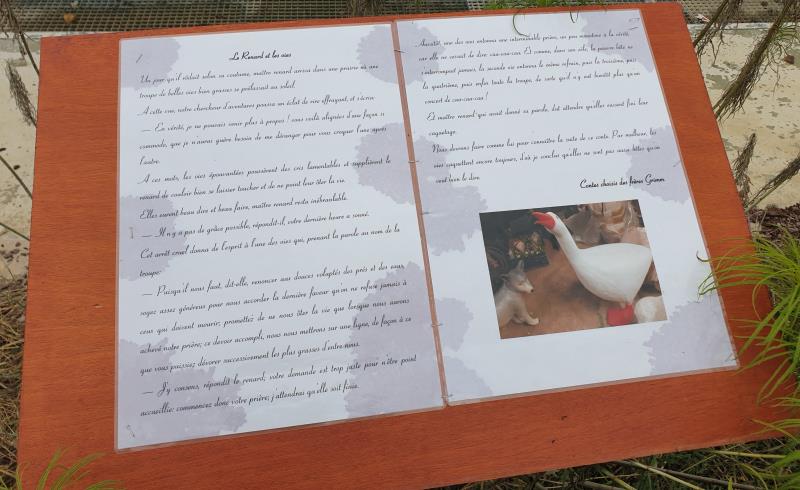 Le Renard et les oies
Un jour qu'il rôdait selon sa coutume, maître renard arriva dans une prairie où une
troupe de belles oies bien grasses se prélassait au soleil.
A cette vue, notre chercheur d'aventures poussa un éclat de rire effrayant, et s'écria:
— En vérité, je ne pouvais venir plus à propos ! vous voilà alignées d'une façon si
commode, que je n'aurai guère besoin de me déranger pour vous croquer l'une après
l'autre.
A ces mots, les oies épouvantées poussèrent des cris lamentables et supplièrent le
renard de vouloir bien se laisser toucher et de ne point leur ôter la vie.
Elles eurent beau dire et beau faire, maître renard resta inébranlable.
— Il n'y a pas de grâce possible, répondit-il, votre dernière heure a sonné.
Cet arrêt cruel donna de l'esprit à l'une des oies qui, prenant la parole au nom de la
troupe:
— Puisqu'il nous faut, dit-elle, renoncer aux douces voluptés des prés et des eaux,
soyez assez généreux pour nous accorder la dernière faveur qu'on ne refuse jamais à
ceux qui doivent mourir; promettez de ne nous ôter la vie que lorsque nous aurons
achevé notre prière; ce devoir accompli, nous nous mettrons sur une ligne, de façon à ce
que vous puissiez dévorer successivement les plus grasses d'entre-nous.
— J'y consens, répondit le renard; votre demande est trop juste pour n'être point
accueillie: commencez donc votre prière; j'attendrai qu'elle soit finie.
Aussitôt, une des oies entonna une interminable prière, un peu monotone à la vérité,
car elle ne cessait de dire: caa-caa-caa. Et comme, dans son zèle, la pauvre bête ne
s'interrompait jamais, la seconde oie entonna le même refrain, puis la troisième, puis
la quatrième, puis enfin toute la troupe, de sorte qu'il n'y eut bientôt plus qu'un
concert de caa-caa-caa !
Et maître renard qui avait donné sa parole, dut attendre qu'elles eussent fini leur
caquetage.
Nous devrons faire comme lui pour connaître la suite de ce conte. Par malheur, les
oies caquettent encore toujours, d'où je conclus qu'elles ne sont pas aussi bêtes qu'on
veut bien le dire.
Contes choisis des frères Grimm